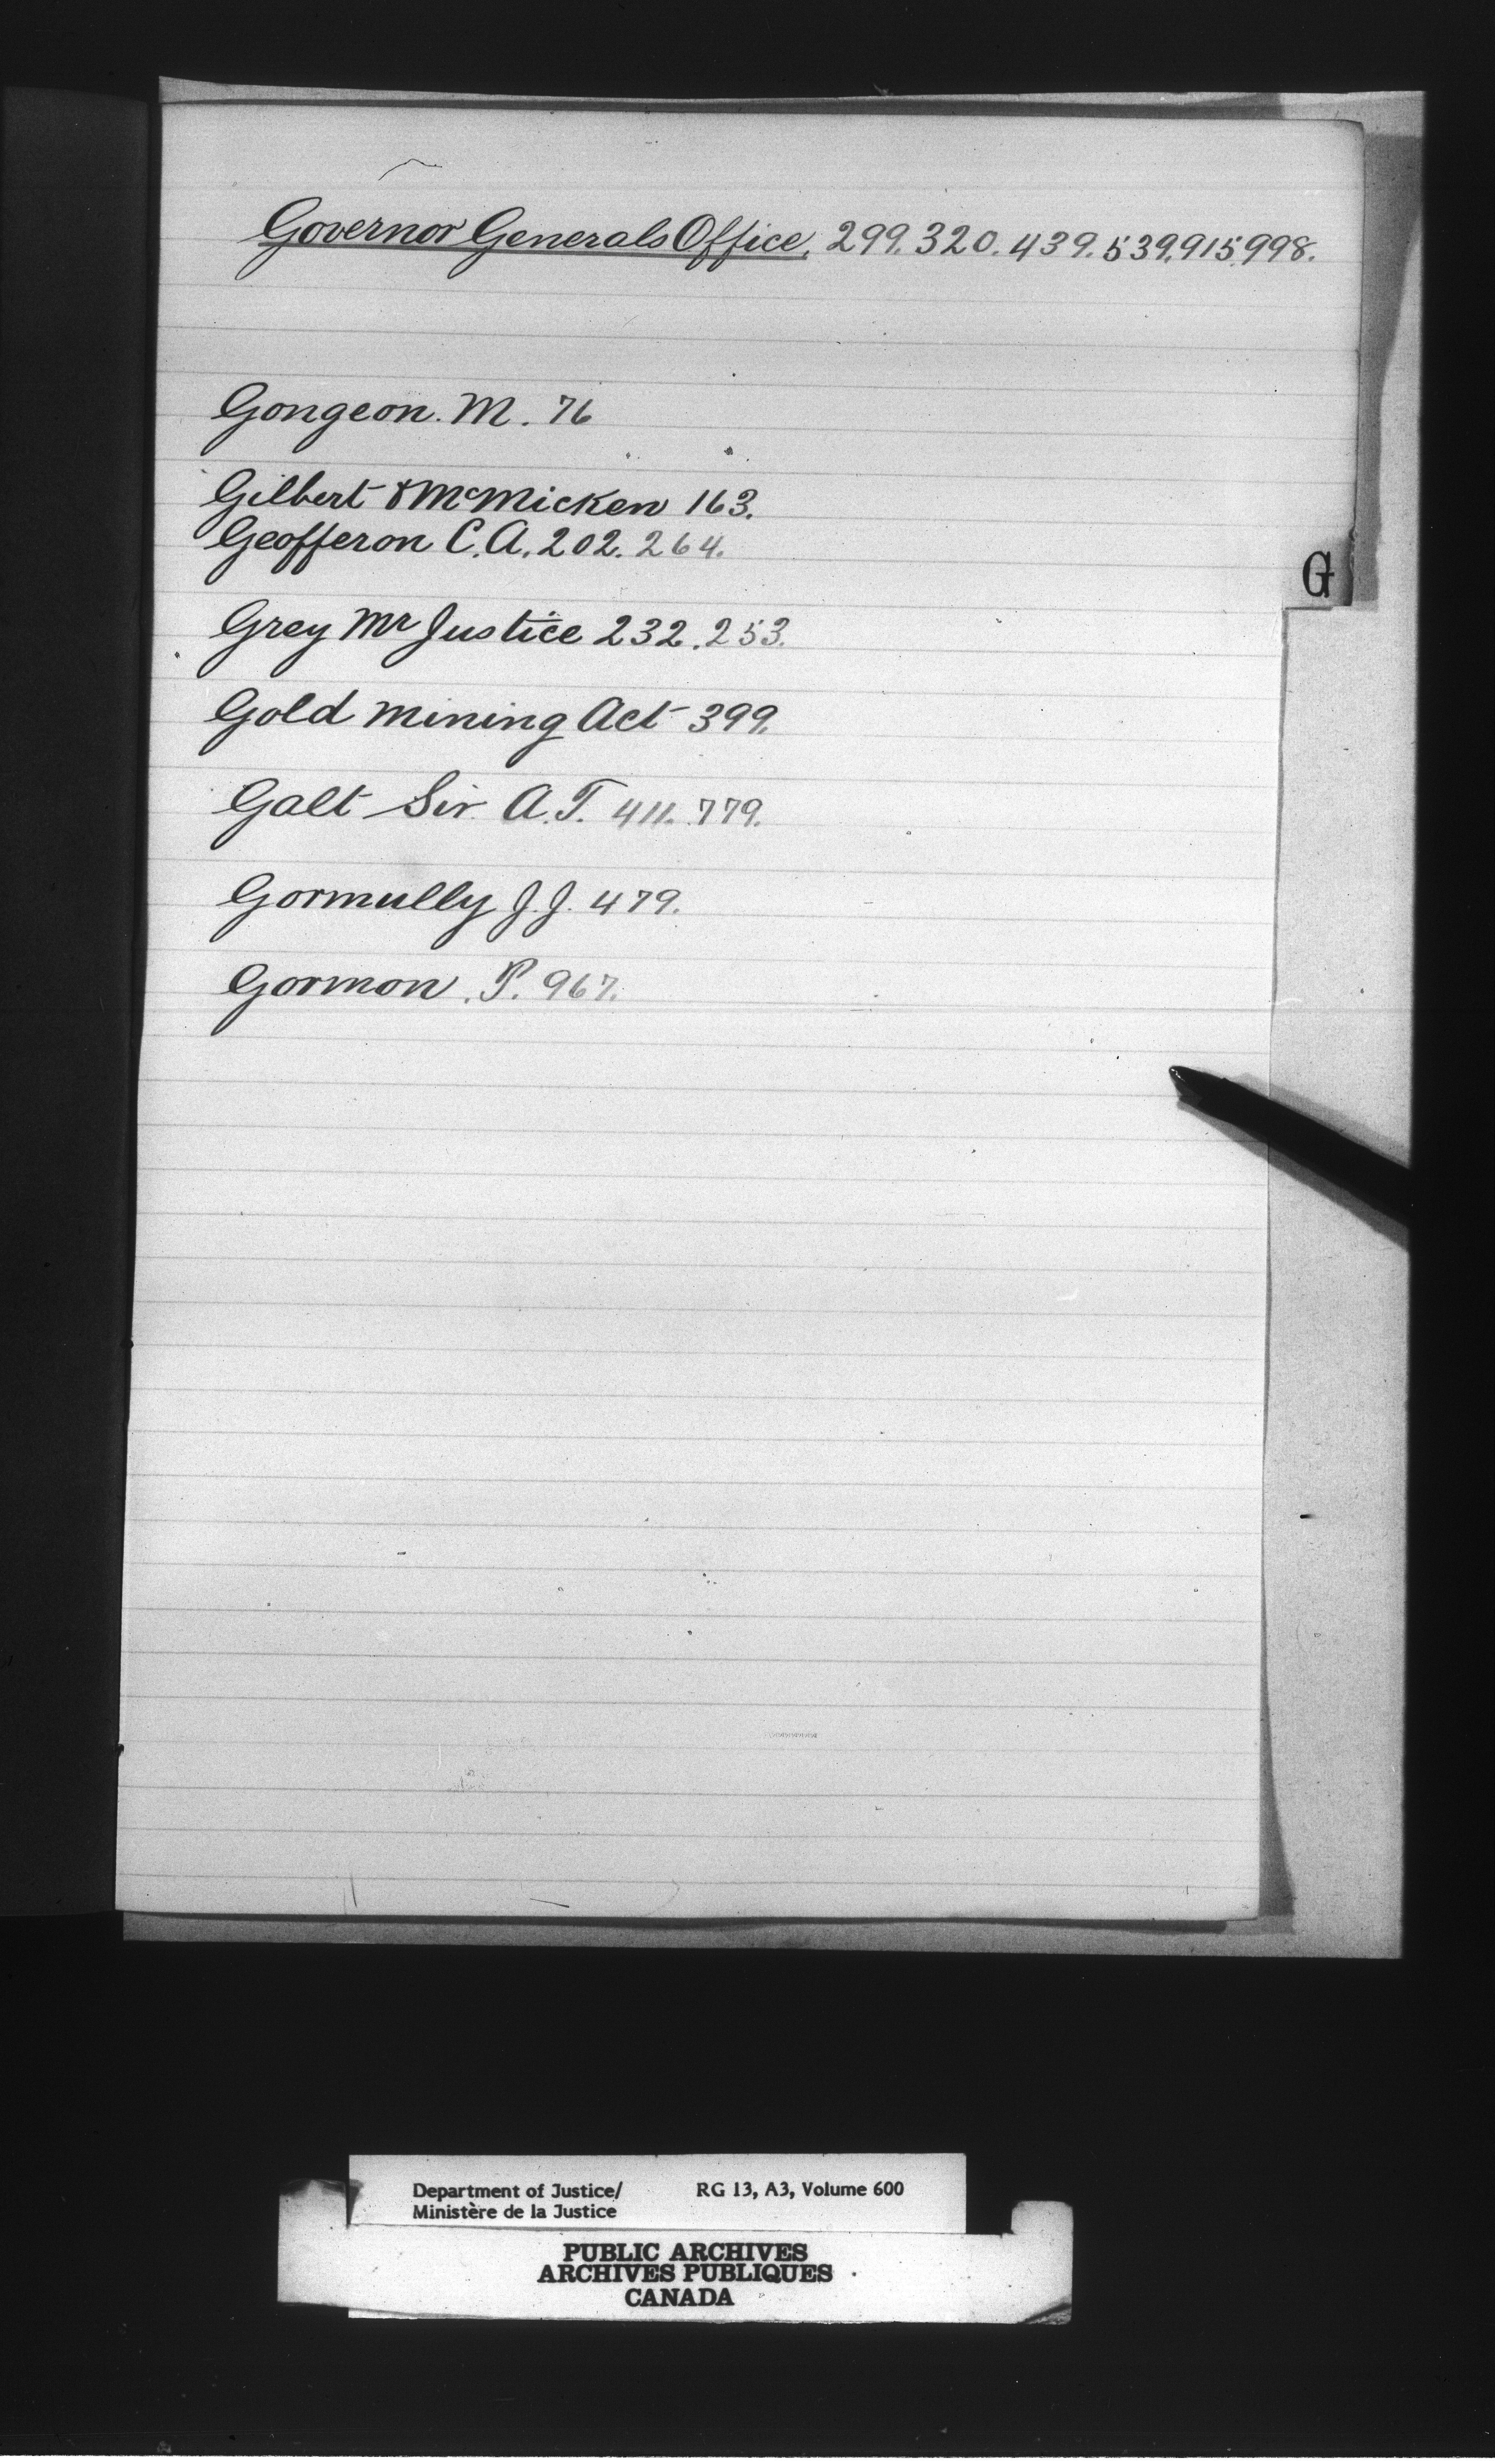 Governor Generals Office, 299. 320. 439. 539. 915. 998.
Gongeon. M. 76
Gilbert & McMicken 163.
Geofferon C. A. 202. 264.
G
Grey Mr Justice 232. 253.
Gold Mining Act 399.
Galt Sir A. T. 411. 779.
Gormully J. J. 479.
Gormon. P. 967.
Department of Justice/ RG 13, A3, Volume 600
Ministère de la Justice
PUBLIC ARCHIVES
ARCHIVES PUBLIQUES
CANADA